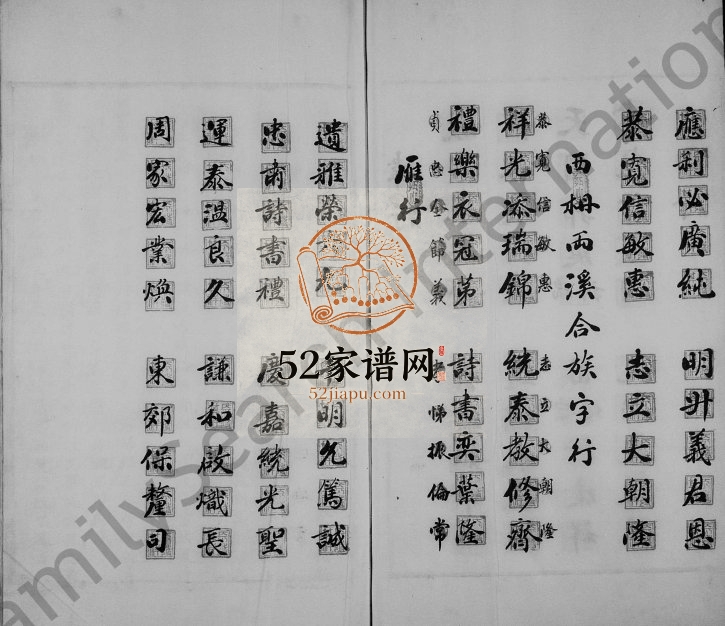 應利必廣純 明升義君恩
恭寬信敏惠 志立大朝隆
西柵兩溪合族字行
恭寬信敏惠 志立大朝隆
祥光添瑞錦 統泰教修齊
禮樂衣冠第 詩書奕葉隆
貞忠全節義 悌振倫常
雁行
遺雅榮 明允篤誠
忠肅詩書禮 慶嘉統光聖
運泰溫良久 謙和啟熾長
周家宏業煥 東郊保釐司
52家谱网
52jiapu.com
FamilySearch International